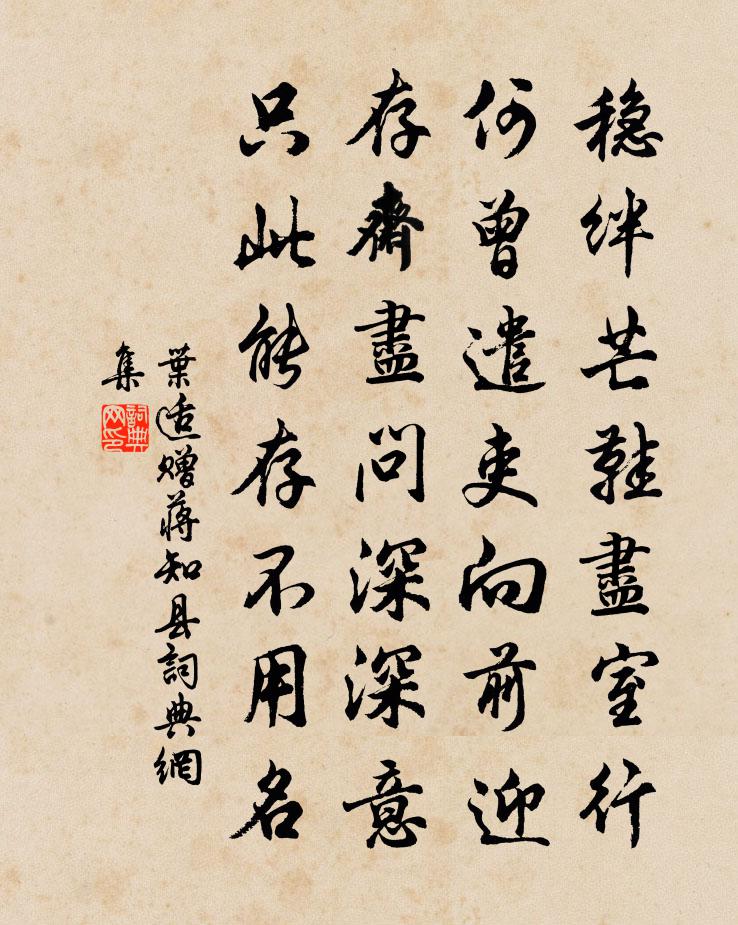 穩絆芒鞋盡室行
何曾遣吏向前迎
存齋盡問深深意
只此能存不用名
葉适贈蔣知县詞典網
集
詞典
网印